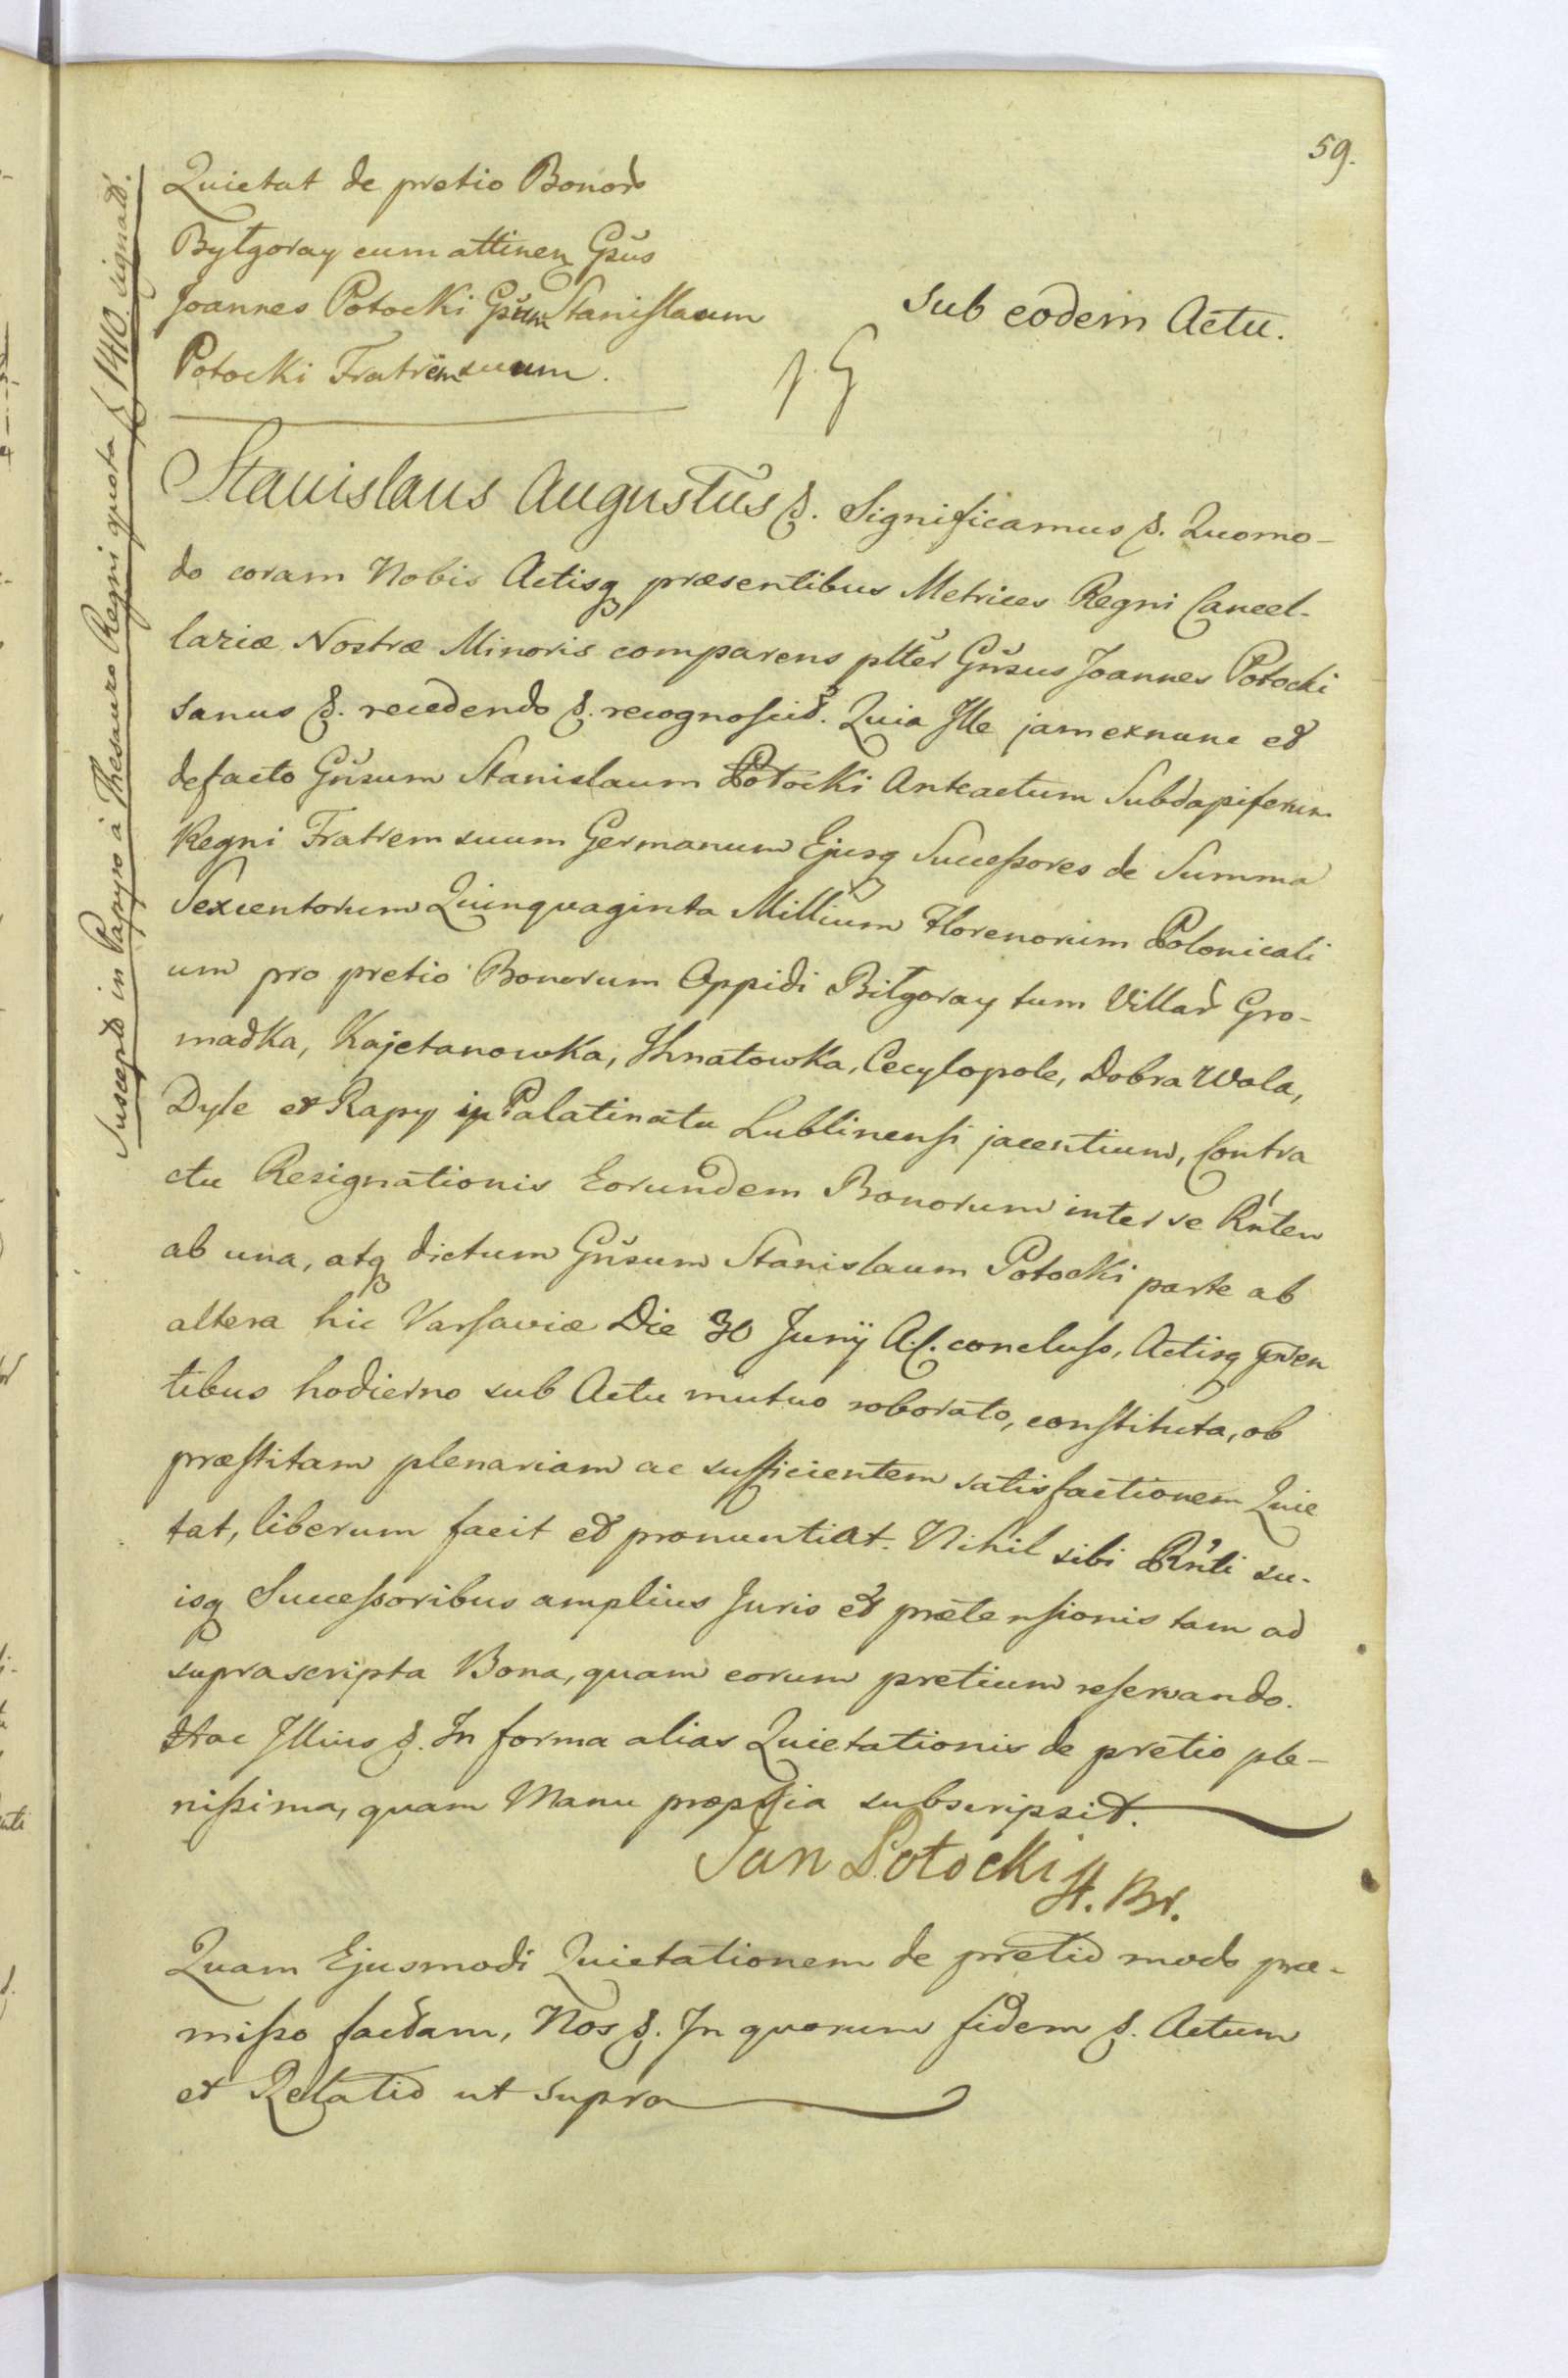 59.
Quietat de pretio Bonor
Byłgoray cum attinen Gsus
Joannes Potocki Gsum Stanislaum
Potocki Fratrem suum.
sub eodem Actu.
Suscepto in Papyro à Thesauro Regni quota f 1410. signatâ.
Stanislaus Augustus &. Significamus &. Quomo-
do coram Nobis Actisq præsentibus Metrices Regni Cancel-
lariæ Nostræ Minoris comparens plter Gnsus Joannes Potocki
sanus &. recedendo &. recognoscit. Quia Ille jam exnunc et
defacto Gnsum Stanislaum Potocki Anteactum Subdapiferum
Regni Fratrem suum Germanum Ejusq Successores de Summa
Sexcentorum Quinquaginta Millium Florenorum Polonicali
um pro pretio Bonorum Oppidi Biłgoray tum Villar Gro-
madka, Kajetanowka, Ihnatowka, Cecylopole, Dobra Wola,
Dyle et Rapy in Palatinatu Lublinensi jacentium, Contra
ctu Resignationis Eorundem Bonorum inter se Rnten
ab una, atq dictum Gnsum Stanislaum Potocki parte ab
altera hic Varsaviæ Die 30 Junij A.C. concluso, Actisq prsen
tibus hodierno sub Actu mutuo roborato, constituta, ob
præstitam plenariam ac sufficientem satisfactionem Quie
tat, liberum facit et pronuntiat. Nihil sibi Rnti su-
isq Successoribus amplius Juris et prætensionis tam ad
suprascripta Bona, quam eorum pretium reservando.
Hac Illius &. In forma alias Quietationis de pretio ple-
nissima, quam Manu propria subscripsit.
Jan Potocki H. Br.
Quam Ejusmodi Quietationem de pretio modo præ-
misso factam, Nos &. In quorum fidem &. Actum
et Relatio ut supra